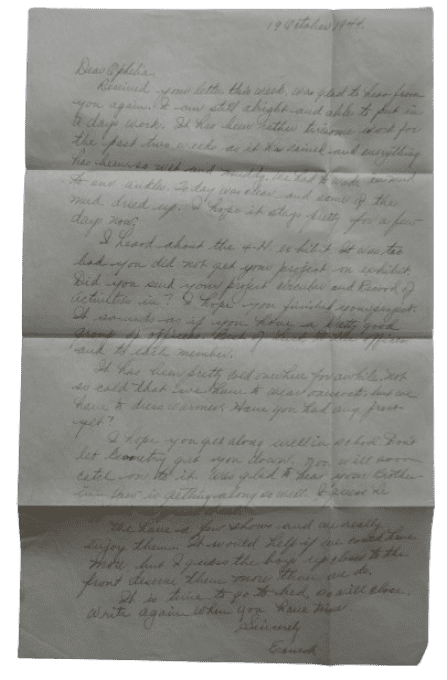 19 October 1944.
Dear Ophelia,
Received your letter this week, was glad to hear from
you again. I am still alright and able to put in
a days work. It has been rather tiresome work for
the past two weeks as it has rained and everything
has been so wet and muddy. We had to work in mud
to our ankles. Today was clear and some of the
mud dried up. I hope it stays pretty for a few
days now.
I heard about the 4-H. exhibit. It was too
bad you did not get your project on exhibit.
Did you send your project circular and Record of
activities in? I hope you finished your project.
It sounds as if you have a pretty good
group of officers. Best of luck to the officers
and to each member.
It has been pretty cold over here for awhile, not
so cold that we have to wear overcoats, but we
have to dress warmer. Have you had any frost
yet?
I hope you get along well in school. Don't
let Geometry get you down. You will soon
catch on to it. Was glad to hear your Brother
in law is getting along so well. I guess he
We have a few shows and we really
enjoy them. It would help if we could have
more, but I guess the boys up closer to the
front deserve them more than we do.
It is time to go to bed, so will close.
Write again when you have time.
Sincerely